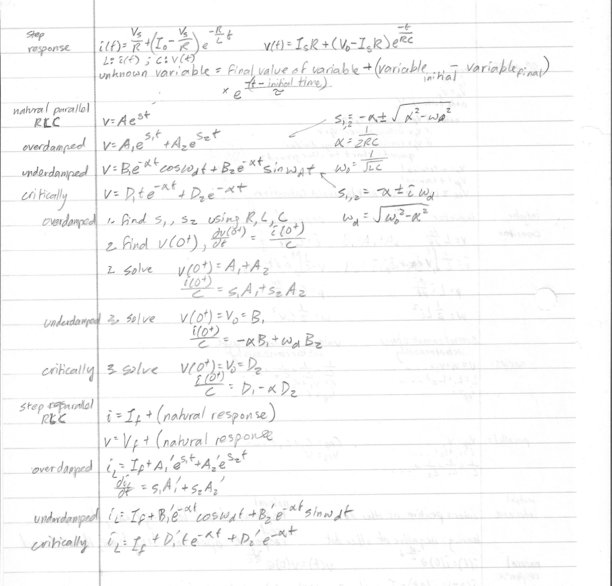 step response i(t) = Vs/R + (I₀ - Vs/R) e^(-R/L t) v(t) = IₛR + (V₀ - IₛR) e^(-t/RC)
L: i(t) ; C: v(t)
unknown variable = final value of variable + (variable initial - variable final)
× e^(-(t - initial time)/τ)
natural parallel RLC v = Ae^(st) s₁,₂ = -α ± √(α² - ω₀²)
α = 1/2RC
overdamped v = A₁e^(s₁t) + A₂e^(s₂t)
underdamped v = B₁e^(-αt) cos ω_d t + B₂e^(-αt) sin ω_d t ω₀ = 1/√LC
critically v = D₁te^(-αt) + D₂e^(-αt) s₁,₂ = -α ± i ω_d
overdamped 1. find s₁, s₂ using R, L, C ω_d = √(ω₀² - α²)
2 find v(0⁺), dv(0⁺)/dt = i(0⁺)/C
2 solve v(0⁺) = A₁ + A₂
i(0⁺)/C = s₁A₁ + s₂A₂
underdamped solve v(0⁺) = V₀ = B₁
i(0⁺)/C = -αB₁ + ω_d B₂
critically 3 solve v(0⁺) = V₀ = D₂
i(0⁺)/C = D₁ - αD₂
step parallel RLC i = I_f + (natural response)
v = V_f + (natural response
overdamped i_L = I_f + A₁'e^(s₁t) + A₂'e^(s₂t)
di_L/dt = s₁A₁' + s₂A₂'
underdamped i_L = I_f + B₁'e^(-αt) cos ω_d t + B₂'e^(-αt) sin ω_d t
critically i_L = I_f + D₁'te^(-αt) + D₂'e^(-αt)